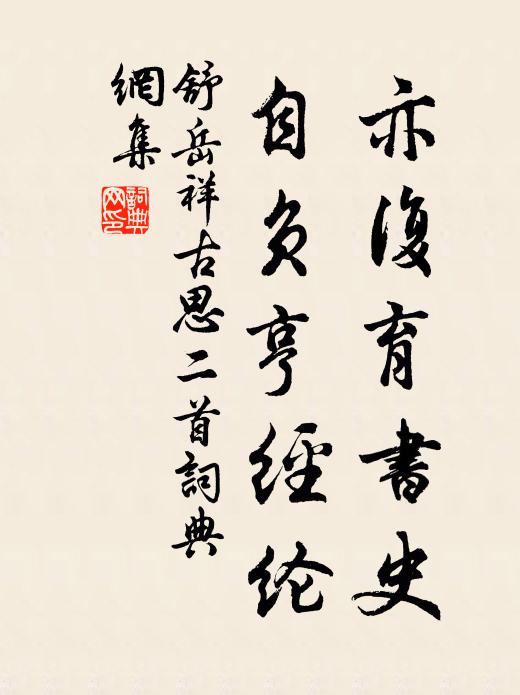 亦復育書史
自負亨經纶
舒岳祥古思二首詞典
網集
詞典网印